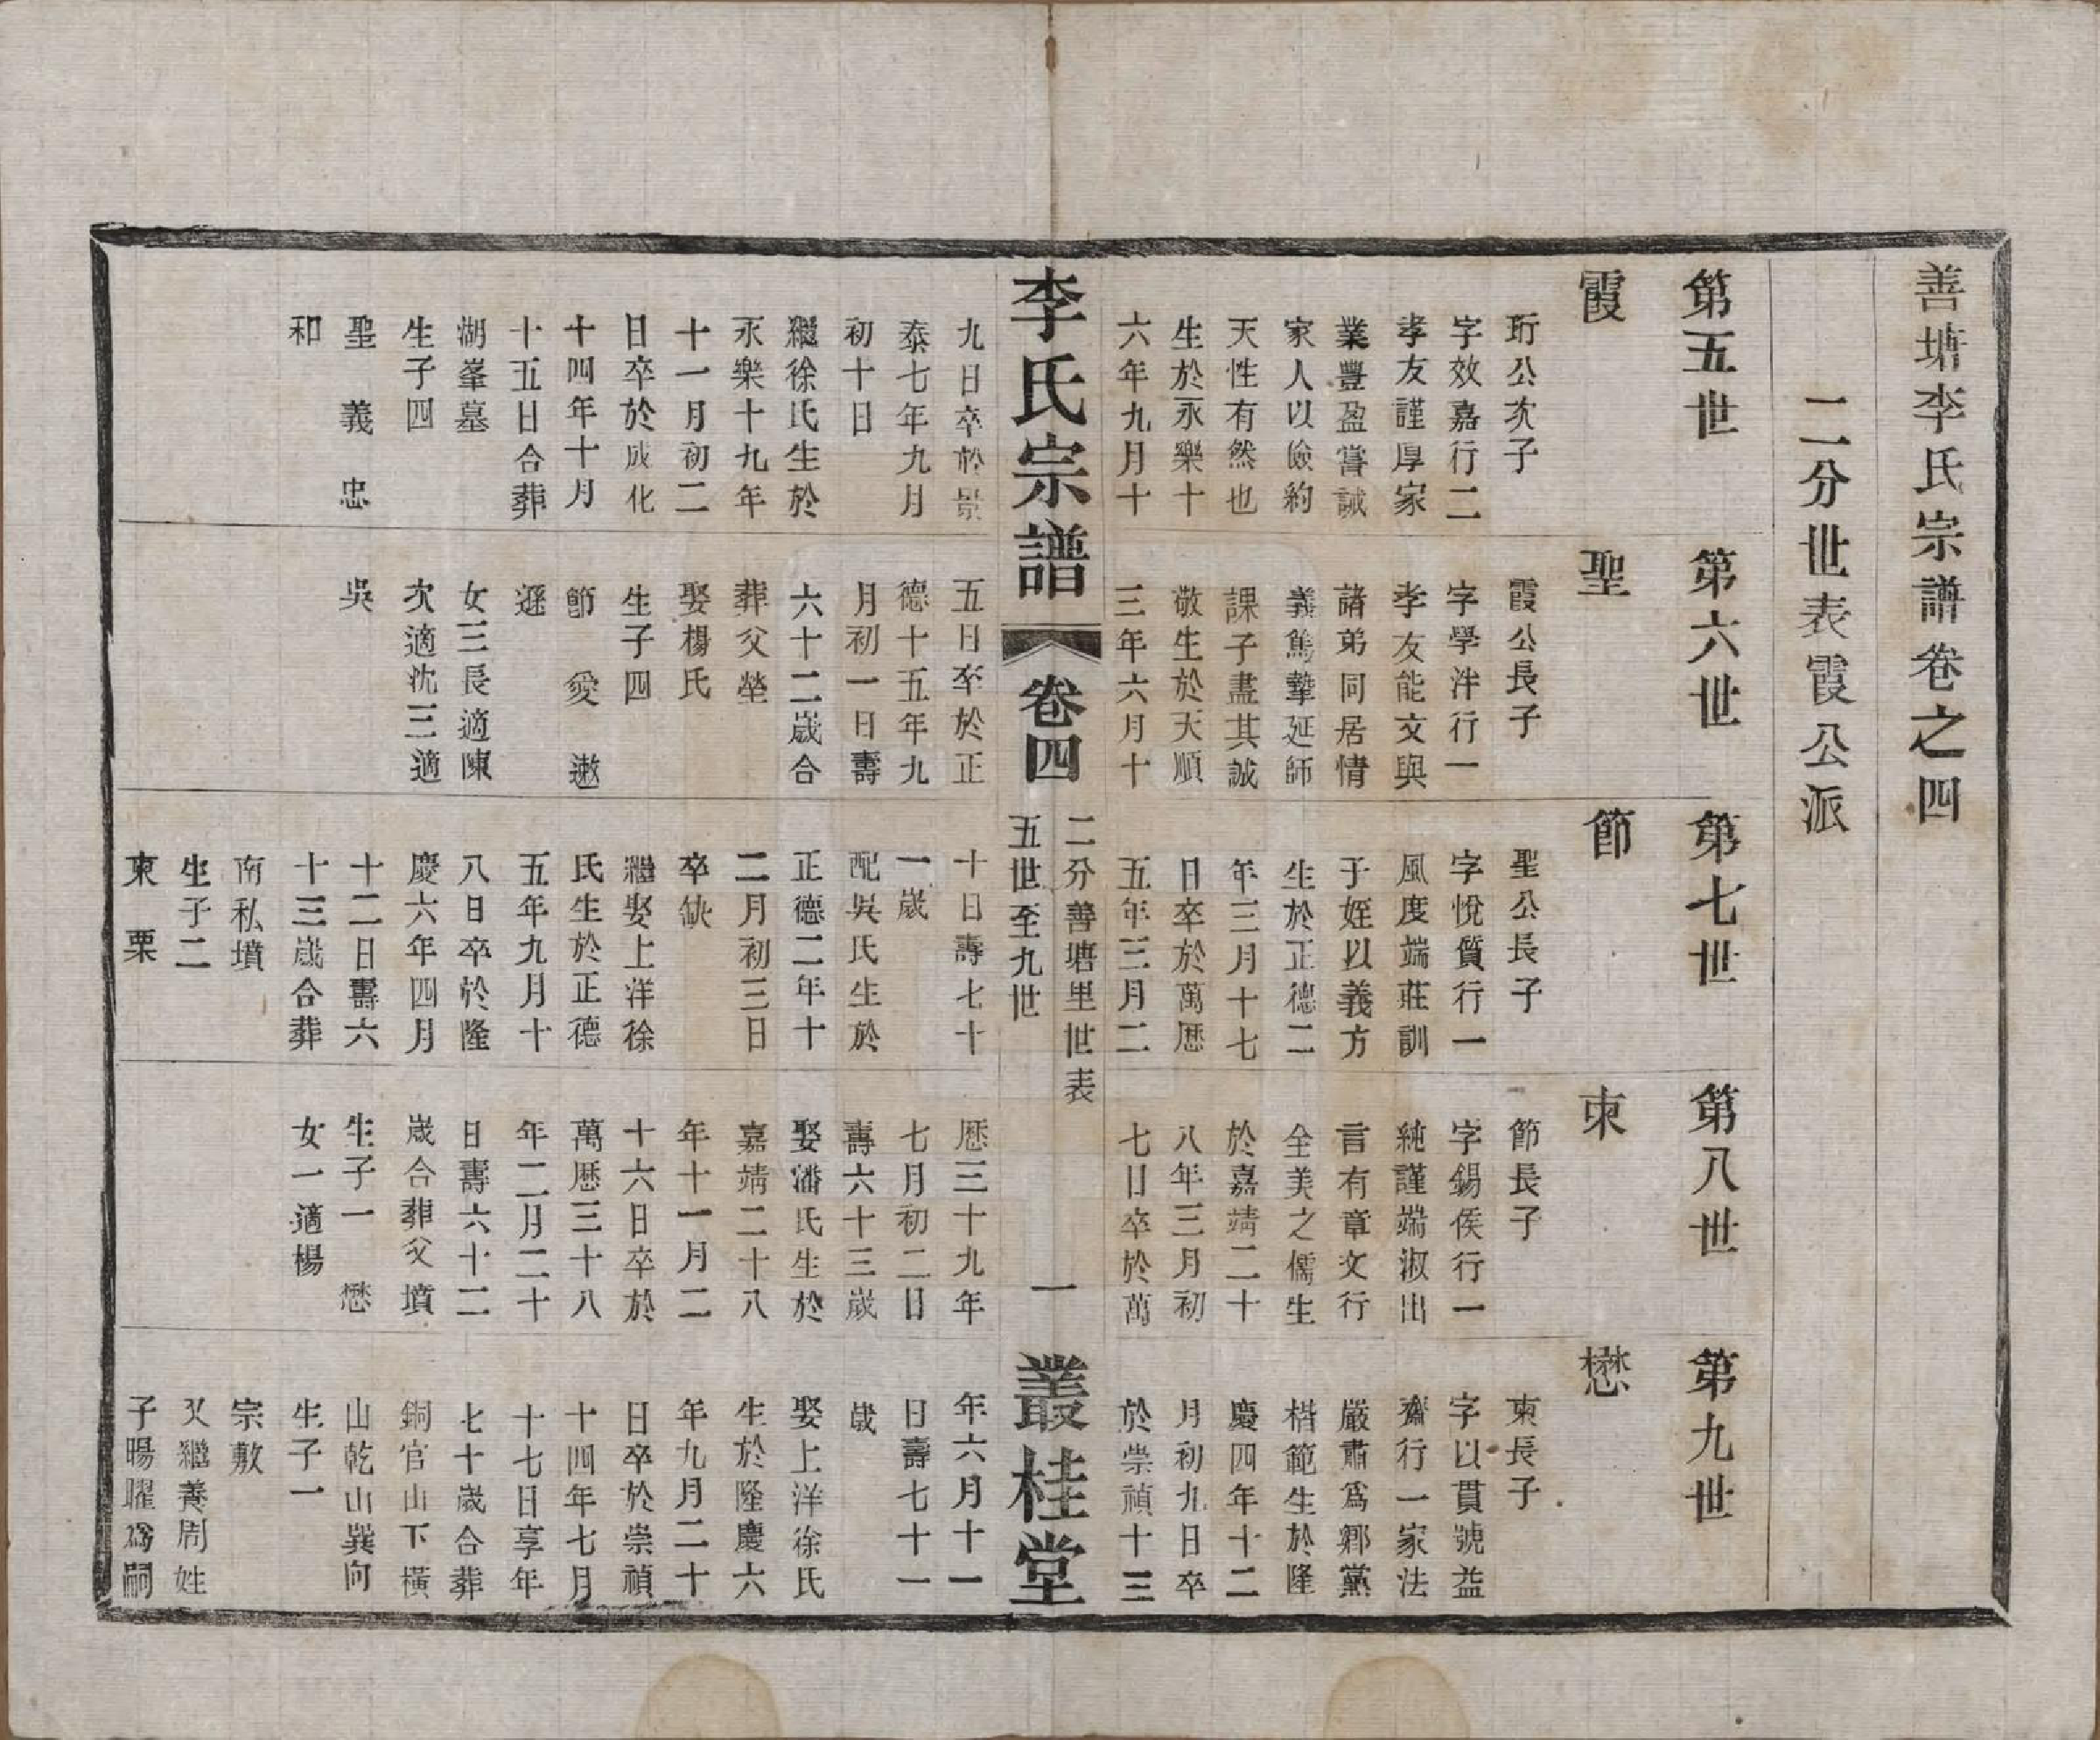 善塘李氏宗譜卷之四
二分世表霞公派
第五世
霞
珩公次子
字效嘉行二
孝友謹厚家
業豐盈嘗誡
家人以儉約
天性有然也
生於永樂十
六年九月十
九日卒於景
泰七年九月
初十日
繼徐氏生於
永樂十九年
十一月初二
日卒於成化
十四年十月
十五日合葬
湖峯墓
生子四
聖 義 忠
和
第六世
聖
霞公長子
字學泮行一
孝友能文與
諸弟同居情
義篤摯延師
課子盡其誠
敬生於天順
三年六月十
五日卒於正
德十五年九
月初一日壽
六十二歲合
葬父塋
娶楊氏
生子四
節 愛 遨
遜
女三長適陳
次適沈三適
吳
第七世
節
聖公長子
字悅質行一
風度端莊訓
子姪以義方
生於正德二
年三月十七
日卒於萬歷
五年三月二
十日壽七十
一歲
配吳氏生於
正德二年十
二月初三日
卒缺
繼娶上洋徐
氏生於正德
五年九月十
八日卒於隆
慶六年四月
十二日壽六
十三歲合葬
南私墳
生子二
東 栗
第八世
東
節長子
字錫侯行一
純謹端淑出
言有章文行
全美之儒生
於嘉靖二十
八年三月初
七日卒於萬
歷三十九年
七月初二日
壽六十三歲
娶潘氏生於
嘉靖二十八
年十一月二
十六日卒於
萬歷三十八
年二月二十
日壽六十二
歲合葬父墳
生子一 懋
女一適楊
第九世
懋
東長子
字以貫號益
齋行一家法
嚴肅為鄉黨
楷範生於隆
慶四年十二
月初九日卒
於崇禎十三
年六月十一
日壽七十一
歲
娶上洋徐氏
生於隆慶六
年九月二十
日卒於崇禎
十四年七月
十七日享年
七十歲合葬
銅官山下橫
山乾山巽向
生子一
宗敷
又繼養周姓
子暘曜爲嗣
李氏宗譜
卷四
二分善塘里世表
五世至九世
一
叢桂堂